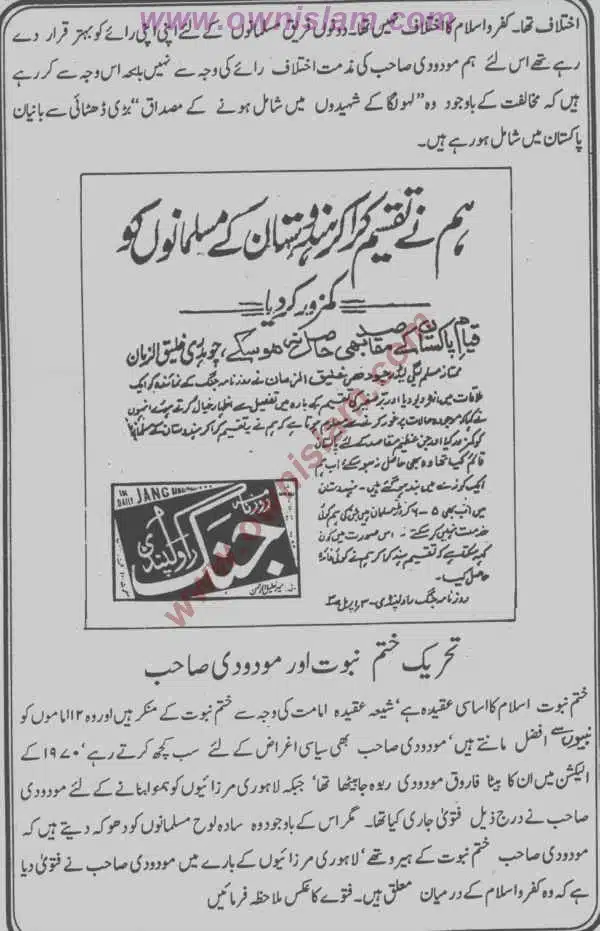 www.ownislam.com
اختلاف تھا۔ کفر و اسلام کا اختلاف نہیں تھا۔ دونوں فریق مسلمانوں کے لئے اپنی اپنی رائے کو بہتر قرار دے
رہے تھے اس لئے ہم مودودی صاحب کی مذمت اختلاف رائے کی وجہ سے نہیں بلکہ اس وجہ سے کر رہے
ہیں کہ مخالفت کے باوجود وہ "لہو لگا کے شہیدوں میں شامل ہونے کے مصداق" بڑی ڈھٹائی سے بانیان
پاکستان میں شامل ہو رہے ہیں۔
ہم نے تقسیم کرا کر ہندوستان کے مسلمانوں کو
کمزور کر دیا
قیام پاکستان کے مقاصد بھی حاصل نہ ہو سکے، چوہدری خلیق الزمان
ممتاز مسلم لیگی لیڈر چوہدری خلیق الزمان نے روزنامہ جنگ کے نمائندہ کو ایک
ملاقات میں انٹرویو دیا اور برصغیر کی تقسیم کے بارہ میں تفصیل سے اظہار خیال کرتے ہوئے انہوں
نے کہا کہ موجودہ حالات پر غور کرنے سے معلوم ہوتا ہے کہ ہم نے یہ تقسیم کرا کر ہندوستان کے مسلمانوں
کو کمزور کیا اور جن عظیم مقاصد کے لئے پاکستان
قائم کیا تھا وہ بھی حاصل نہ ہو سکے اب ہم
ایک کوزے میں بند ہو گئے ہیں۔ ہندوستان
میں اب بھی ۵-۶ کروڑ مسلمان ہیں جن کی ہم کوئی
خدمت نہیں کر سکتے۔ اس صورت میں کون
کہہ سکتا ہے کہ تقسیم ہند کرا کر ہم نے کوئی فائدہ
حاصل کیا۔
روزنامہ جنگ راولپنڈی
DAILY JANG
روزنامہ
جنگ
راولپنڈی
www.ownislam.com
تحریک ختم نبوت اور مودودی صاحب
ختم نبوت اسلام کا اساسی عقیدہ ہے' شیعہ عقیدہ امامت کی وجہ سے ختم نبوت کے منکر ہیں اور وہ ۱۲ اماموں کو
نبیوں سے افضل مانتے ہیں' مودودی صاحب بھی سیاسی اغراض کے لئے سب کچھ کرتے رہے' ۱۹۷۰ کے
الیکشن میں ان کا بیٹا فاروق مودودی ربوہ جا بیٹھا تھا' جبکہ لاہوری مرزائیوں کو ہمنوا بنانے کے لئے مودودی
صاحب نے درج ذیل فتویٰ جاری کیا تھا۔ مگر اس کے باوجود وہ سادہ لوح مسلمانوں کو دھوکہ دیتے ہیں کہ
مودودی صاحب ختم نبوت کے ہیرو تھے' لاہوری مرزائیوں کے بارے میں مودودی صاحب نے فتویٰ دیا
ہے کہ وہ کفر و اسلام کے درمیان معلق ہیں۔ فتوے کا عکس ملاحظہ فرمائیں